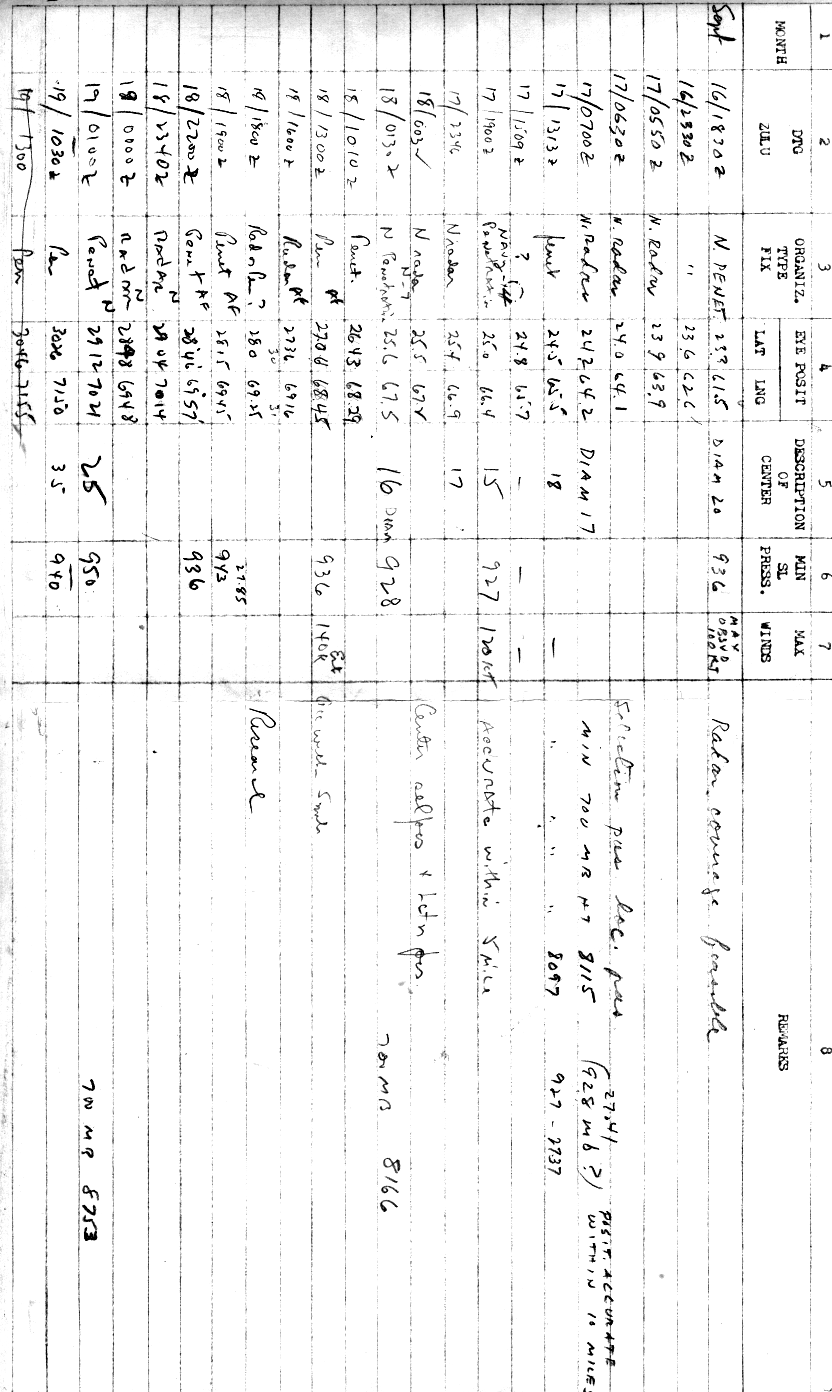 1 2 3 4 5 6 7 8
MONTH DTG ZULU ORGANIZ. TYPE FIX EYE POSIT LAT LNG DESCRIPTION OF CENTER MIN SL PRESS. MAX WINDS REMARKS
Sept 16/1830Z N. PENET. 23.3 61.5 DIAM 20 936 MAX OBSVD 100 KT Radar coverage feasible
16/2330Z " 23.6 62.6
17/0550Z N. Radar 23.9 63.9
17/0630Z N. Radar 24.0 64.1
17/0700Z N. Radar 24.2 64.2 DIAM 17 MIN 700 MB HT 8115 (27.41 928 mb?) POSIT. ACCURATE WITHIN 10 MILES
17/1313Z penet 24.5 65.5 18 — " " " " 8097 927 - 2737
17/1559Z ? 24.8 65.7 - — —
17/1900Z Penetration 25.0 66.4 15 927 120 KT. Accurate within 5 mile
17/2346 N radar 25.4 66.9 17
18/003 N radar 25.5 67.2 Center
18/0130Z N Penetration 25.6 67.5 16 Diam 928 700 MB 8166
18/1010Z Penet. 2643 6829
18/1300Z Pen AF 2706 6845 936 140K Est
18/1600Z Radar AF 2736 6916
18/1800Z Radar Pen? 280 6925 Research
18/1900Z Penet AF 2815 6945 27.85 943
18/2200Z Penet AF 2846 6957 936
18/2340Z Radar N 2904 7014
19/0000Z Radar N 2898 6948
19/0100Z Penet N 2912 7021 25 950 700 MB 8753
19/1030Z Pen 3026 7150 35 940
19/1300 Pen 3046 7155